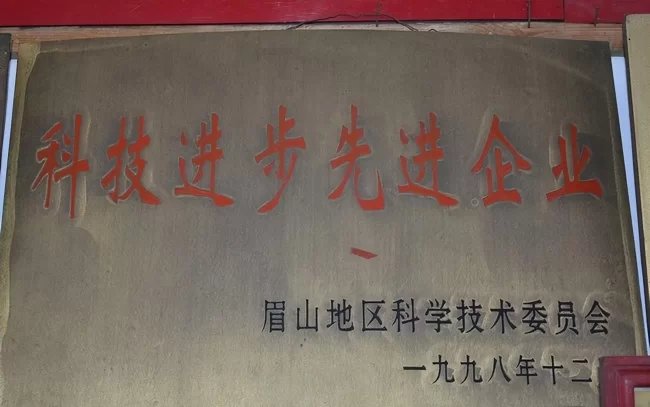 科技进步先进企业
眉山地区科学技术委员会
一九九八年十二